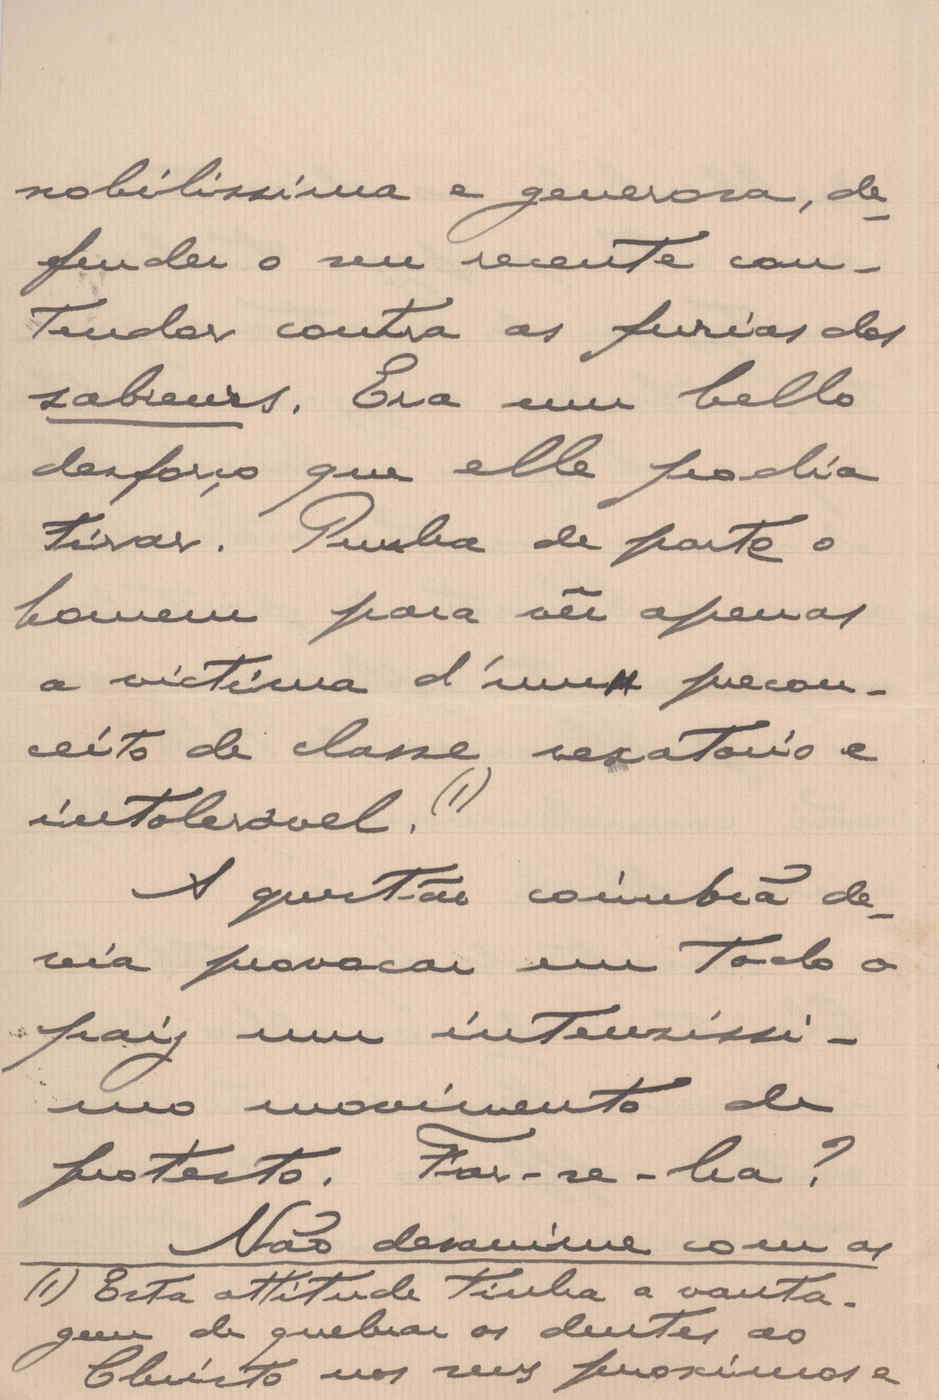 nobilissima e generosa, de-
fender o seu recente con-
tendor contra as furias dos
sabreurs. Era um bello
desforço que elle podia
tirar. Punha de parte o
homem para vêr apenas
a victima d'um precon-
ceito de classe vexatorio e
intoleravel. (1)
A questão coimbrã de-
via provocar em todo o
paiz um intensissi-
mo movimento de
protesto. Far-se-ha?
Não desanime com as
(1) Esta attitude tinha a vanta-
gem de quebrar os dentes ao
Christo nos seus proximos e